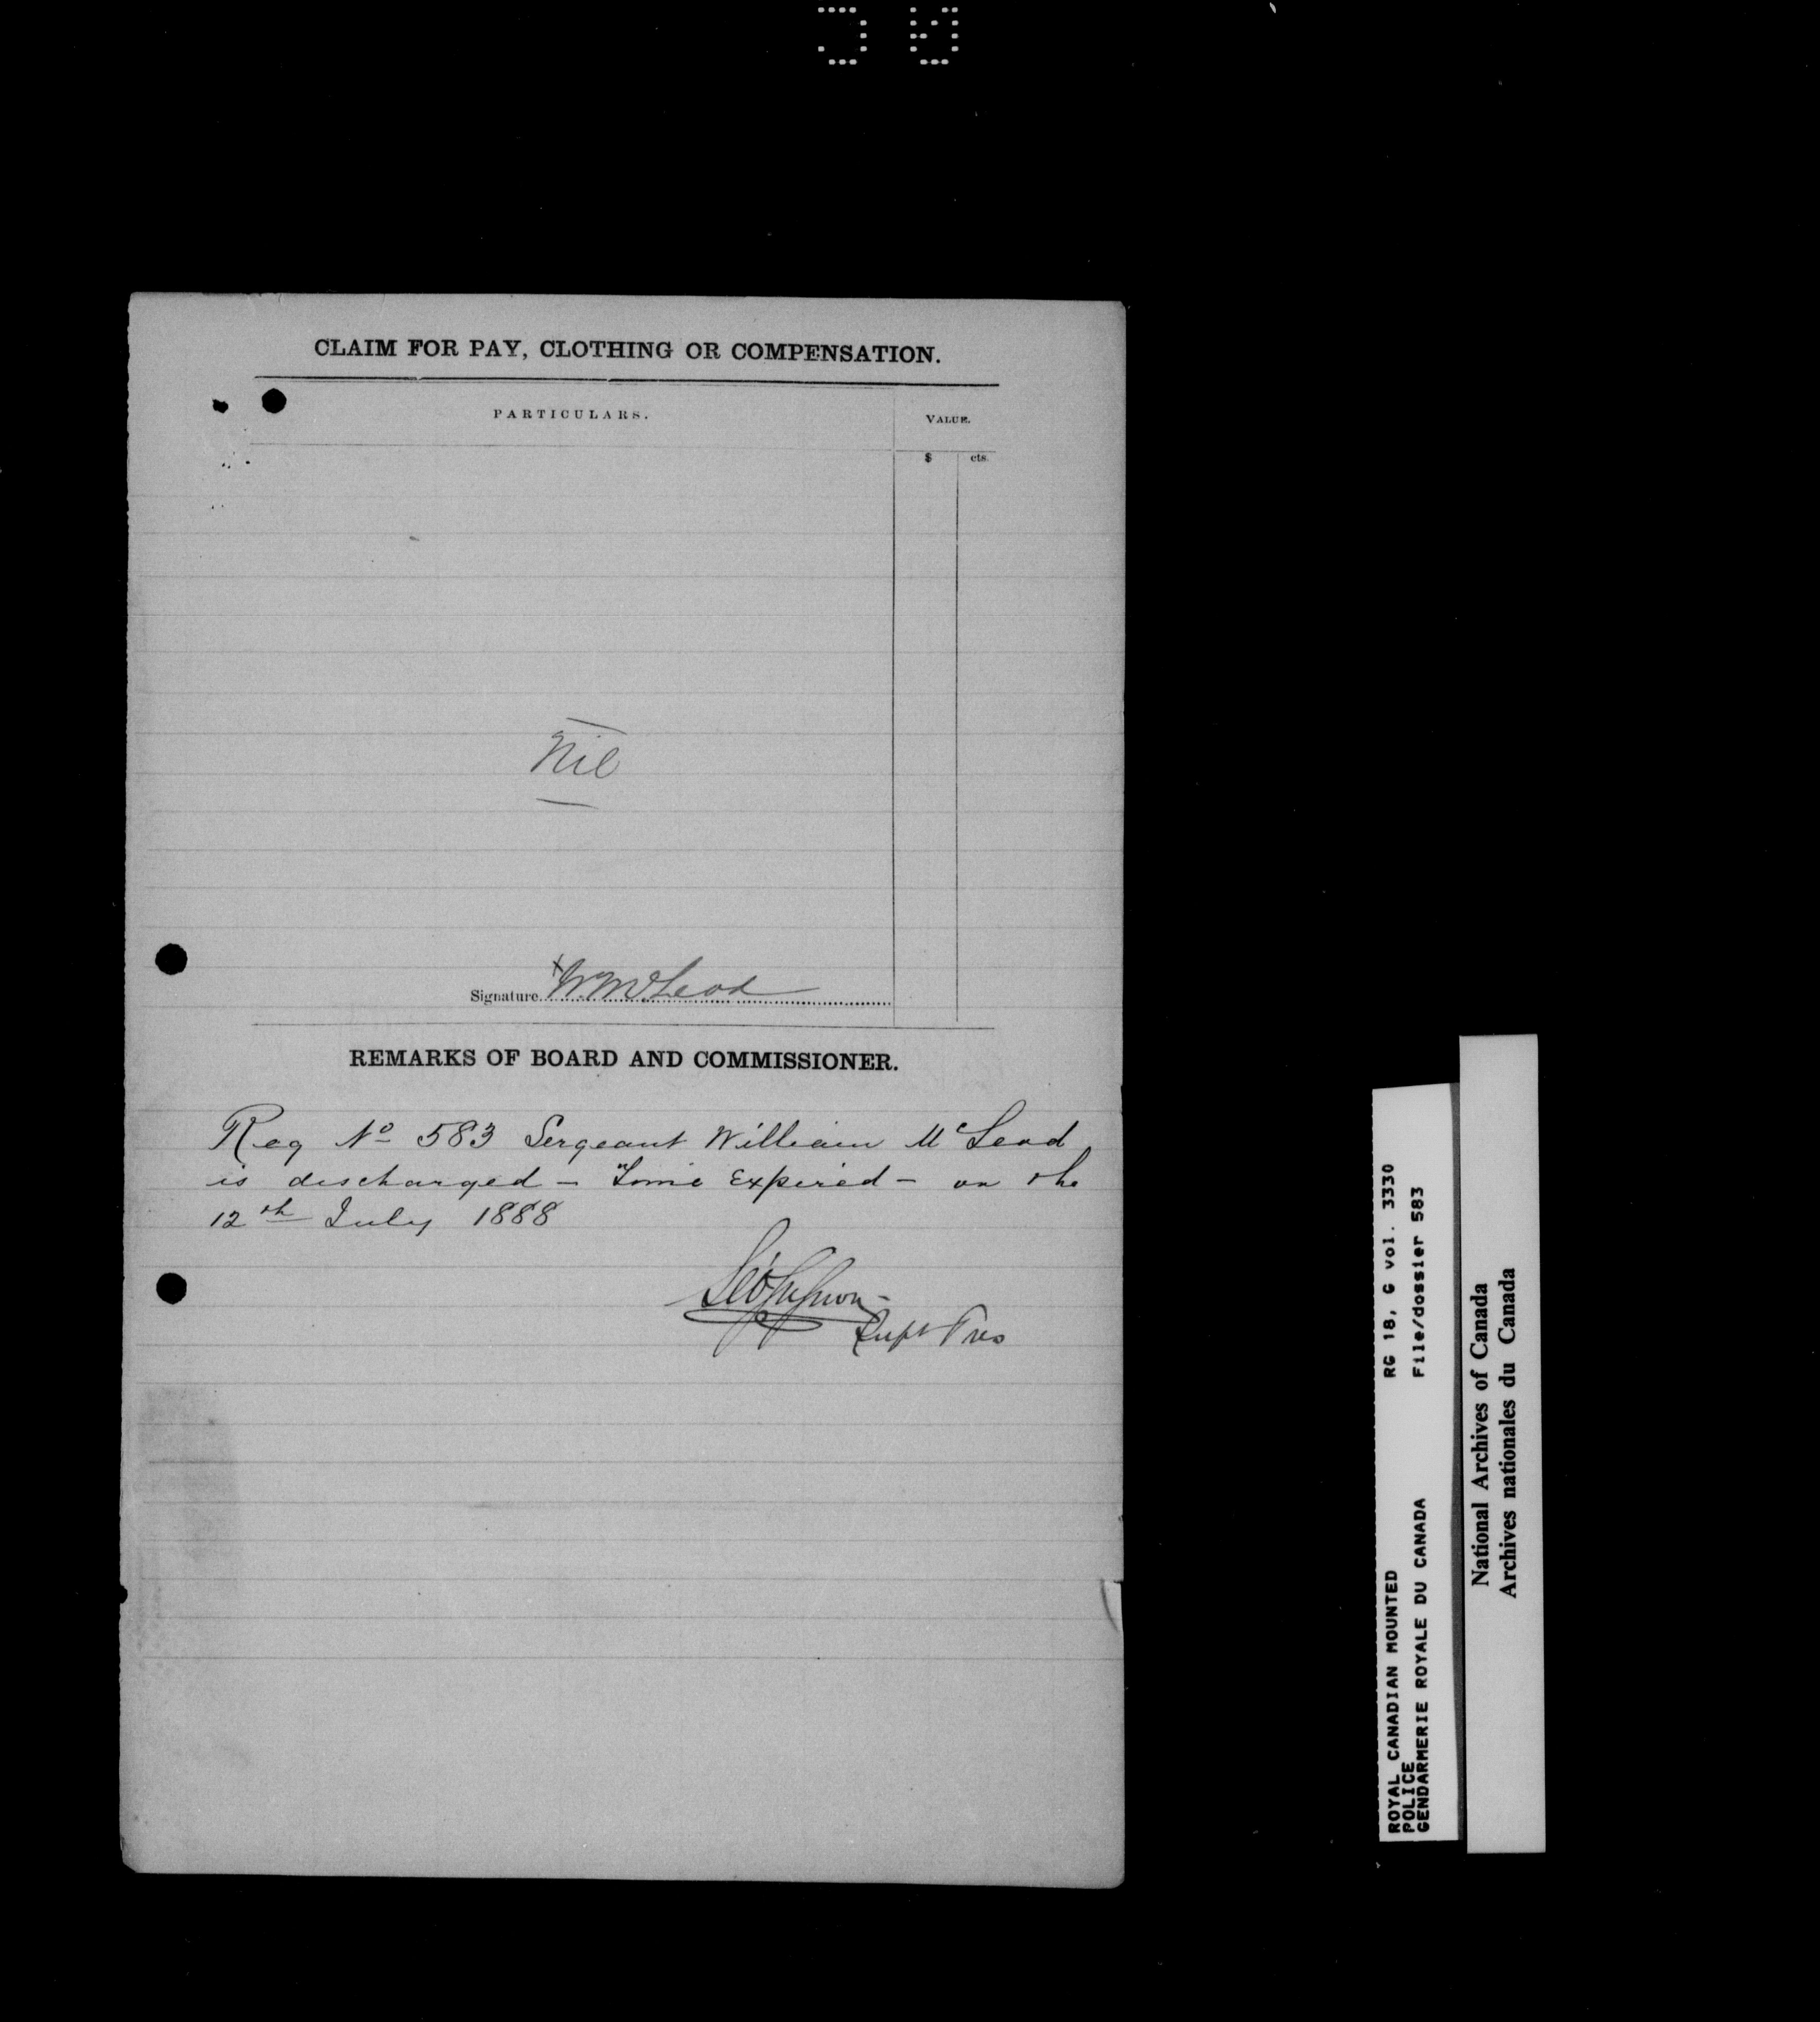 CLAIM FOR PAY, CLOTHING OR COMPENSATION.
PARTICULARS.
VALUE.
$ cts.
Nil
Signature x W McLeod
REMARKS OF BOARD AND COMMISSIONER.
Reg No 583 Sergeant William McLeod
is discharged – "Time Expired – on the
12th July 1888
Supt Pres
ROYAL CANADIAN MOUNTED RG 18, G vol. 3330
POLICE
GENDARMERIE ROYALE DU CANADA File/dossier 583
National Archives of Canada
Archives nationales du Canada